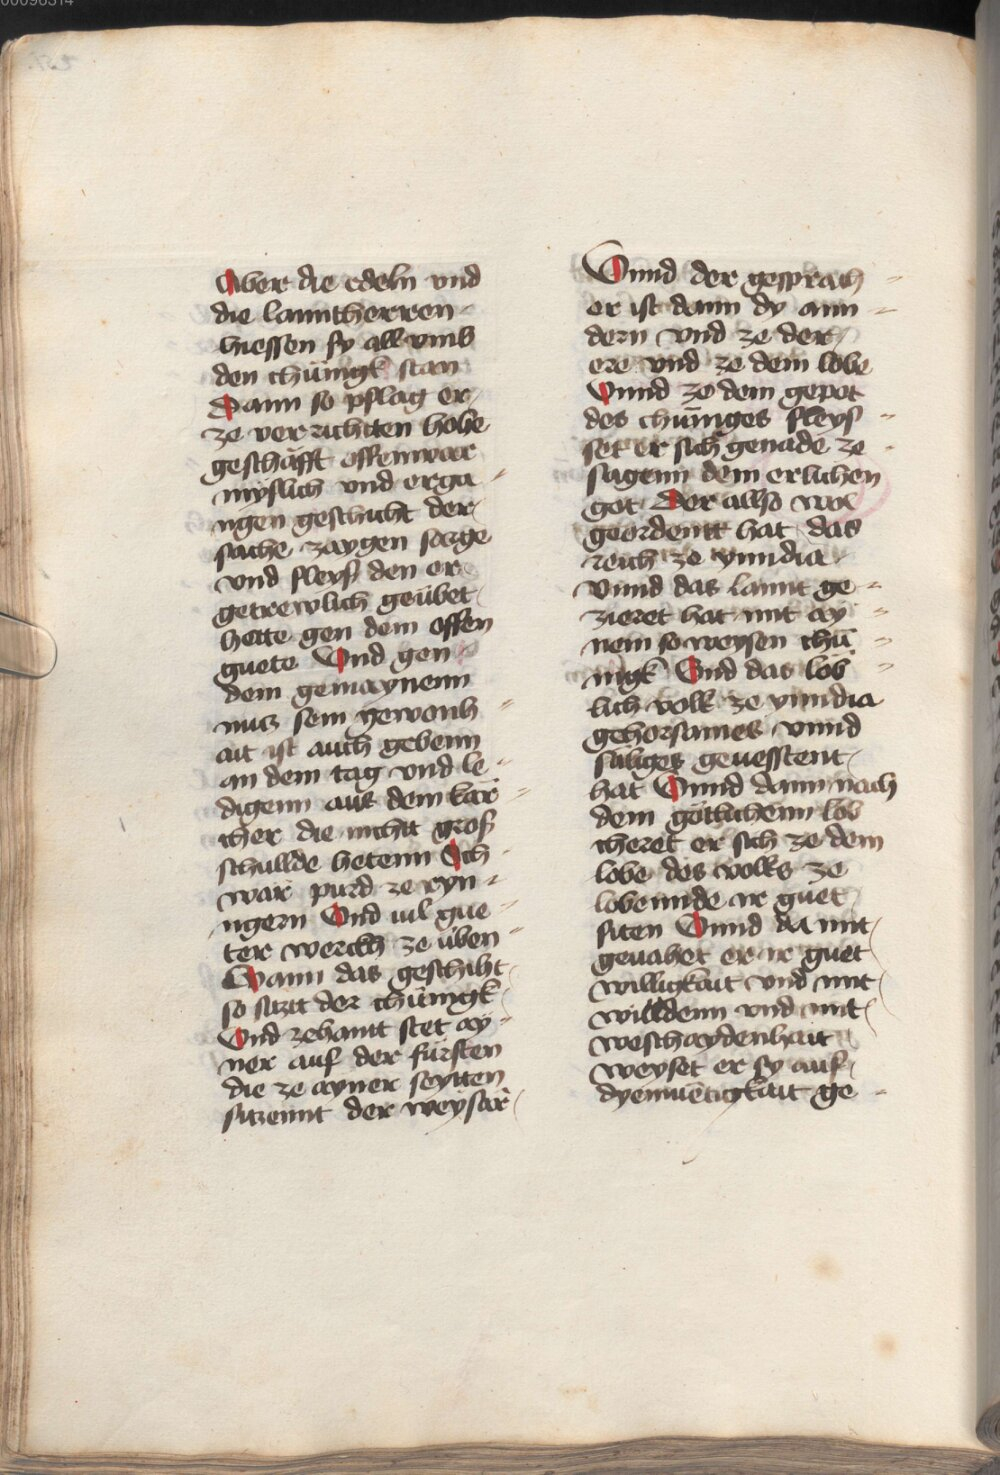 00096314
Aber die edeln vnd
die lanntherren
hiessen sy all vmb
den chünigk stan
Dann so pflag er
ze verrichtten hohe
geschäfft offenwar
mysslich vnd erga
ngen geschicht der
sache zaygen sorge
vnd fleyß den er
getrewlich geübet
hette gen dem offen
guete Vnd gen
dem gemaynenn
nucz sein gewonh
ait ist auch gebenn
an dem tag vnd le
digenn aus dem kär
cher die nichtt groß
schullde hetenn Och
wär purd ze ryn
ngern Vnd vil gue
ter werckh ze üben
Wann das geschiht
so siczt der chünigk
Vnd zehannt stet ay
ner auf der fürsten
die ze ayner seytten
siczennt der weysär
Vnnd der gesprach
er ist dann dy ann
dern vnd ze der
ere vnd ze dem lobe
Vnnd ze dem gepot
des chüniges fleys
set er sich genade ze
sagenn dem erlichen
got Der allso wol
geordentt hat das
reich ze ynndia
vnnd das lannt ge
zieret hat mit ay
nem so weysen chü
nigk Vnd das löb
lich volk ze ynndia
gehorsames vnnd
säliges geuesstent
hat Vnnd dann nach
dem götlichenn lob
cheret er sich ze dem
lobe des volks ze
lobennde ir guet
siten Vnnd da mit
geuahet er ir guet
willigkait vnd mit
willdenn vnd mit
weschaydenhait
weyset er sy auf
dyemuetigkait ge